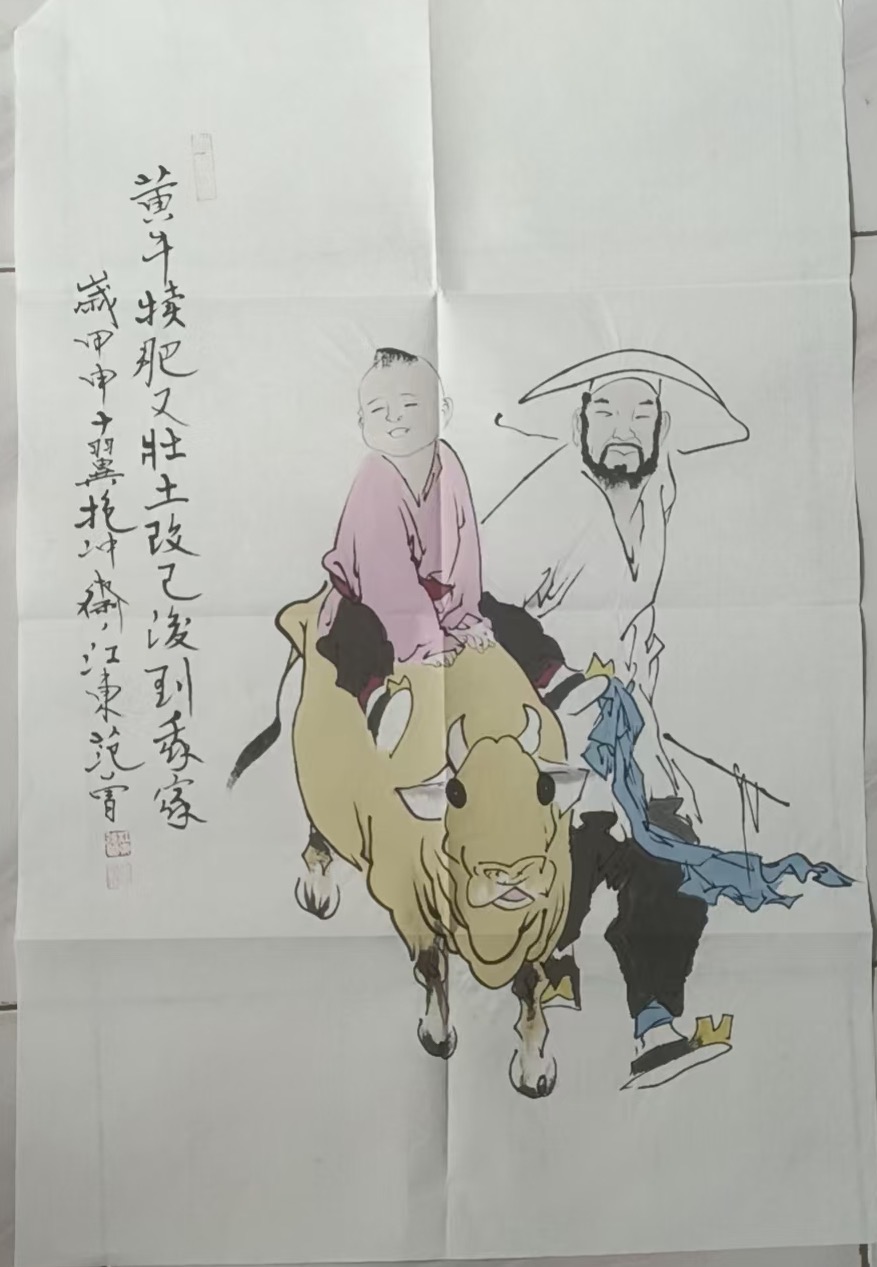 黄牛犊肥又壮土改已后到我家
岁甲申十翼抱冲斋江东范曾